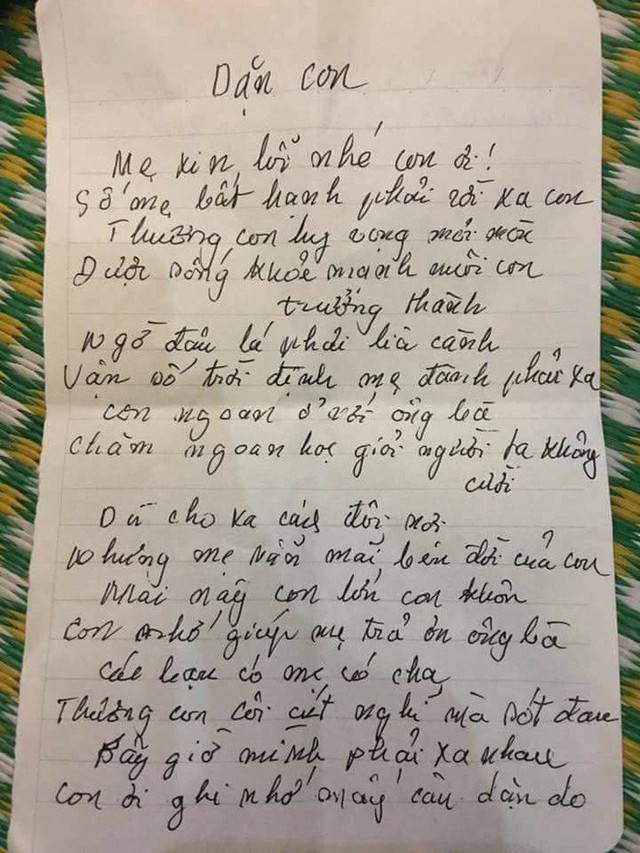 Dặn con
Mẹ xin lỗi nhé con ơi!
Số mẹ bất hạnh phải rời xa con
Thương con hy vọng mỏi mòn
Được sống khỏe mạnh nuôi con
trưởng thành
Ngờ đâu lá phải lìa cành
Vận số trời định mẹ đành phải xa
con ngoan ở với ông bà
chăm ngoan học giỏi người ta không
cười
Dù cho xa cách đôi nơi
Nhưng mẹ vẫn mãi bên đời của con
Mai này con lớn con khôn
Con nhớ giúp mẹ trả ơn ông bà
các bạn có mẹ có cha
Thương con côi cút nghĩ mà xót đau
Bây giờ mình phải xa nhau
Con ơi ghi nhớ mấy câu dặn dò